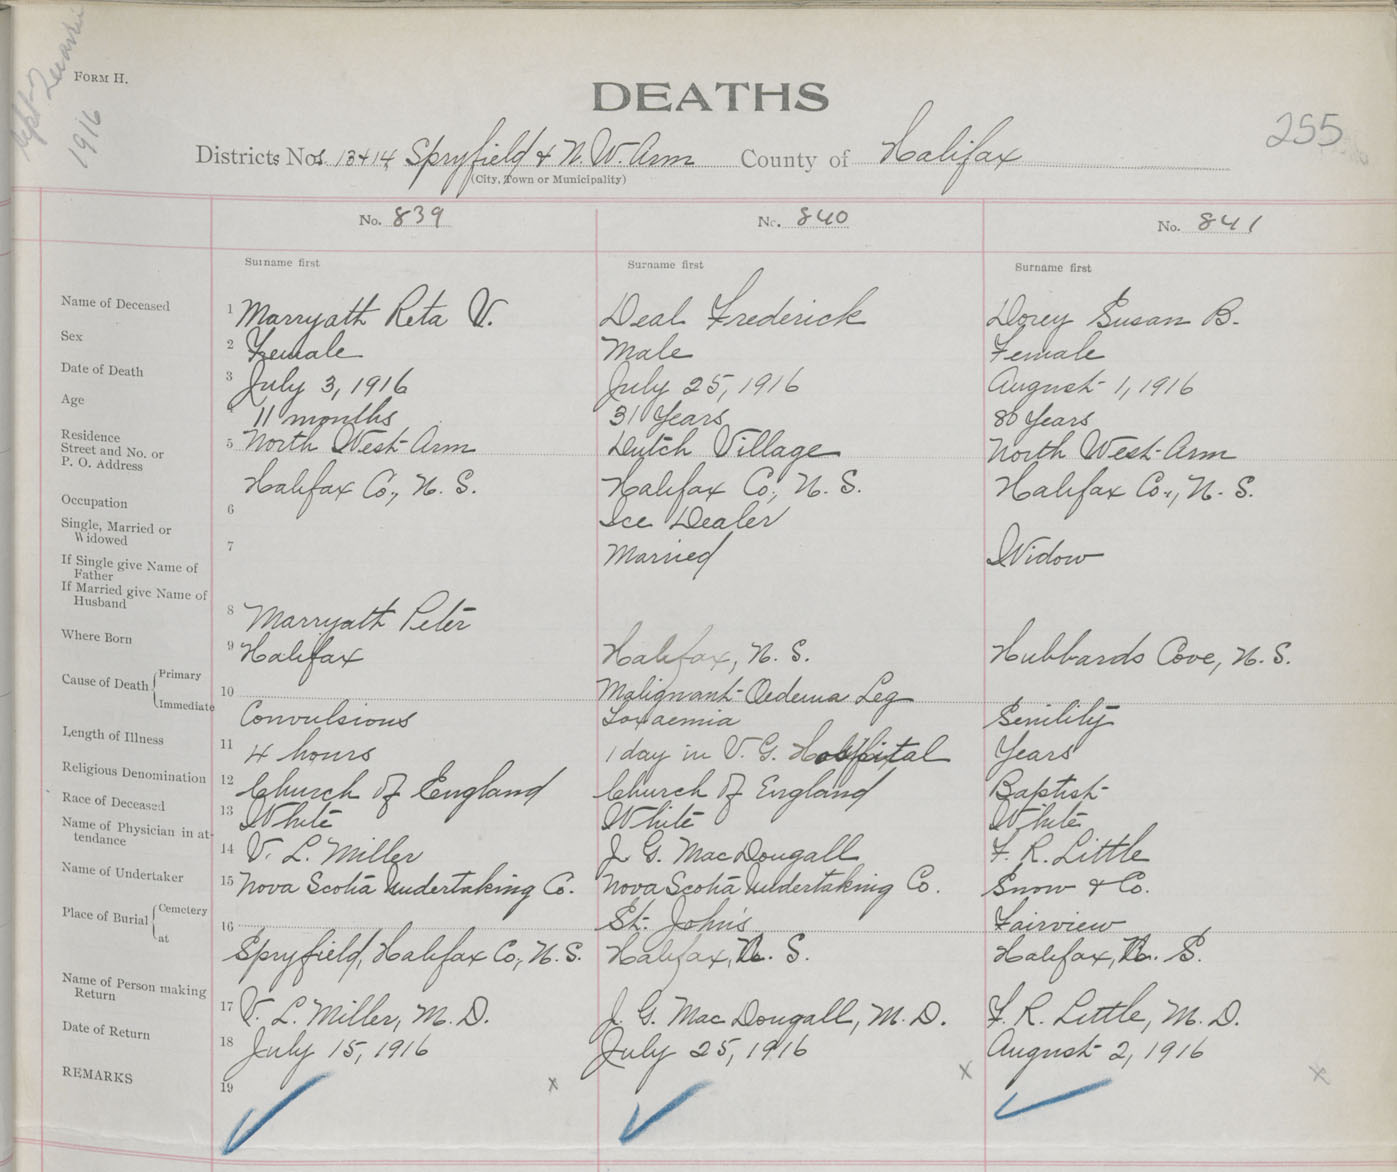 Sept. Quarter
1916
FORM H.
DEATHS
255
Districts Nos. 13 & 14, Spryfield & N. W. Arm County of Halifax
(City, Town or Municipality)
No. 839 No. 840 No. 841
Surname first Surname first Surname first
Name of Deceased 1 Marryath Reta V. Deal Frederick Dorey Susan B.
Sex 2 Female Male Female
Date of Death 3 July 3, 1916 July 25, 1916 August 1, 1916
Age 4 11 months 31 Years 80 Years
Residence
Street and No. or 5 North West Arm Dutch Village North West Arm
P. O. Address
Halifax Co., N. S. Halifax Co., N. S. Halifax Co., N. S.
Occupation 6 Ice Dealer
Single, Married or
Widowed 7 Married Widow
If Single give Name of
Father
If Married give Name of
Husband 8 Marryath Peter
Where Born 9 Halifax Halifax, N. S. Hubbards Cove, N. S.
Cause of Death Primary 10 Malignant Oedema Leg
Immediate Convulsions Toxaemia Senility
Length of Illness 11 4 hours 1 day in V. G. Hospital Years
Religious Denomination 12 Church of England Church of England Baptist
Race of Deceased 13 White White White
Name of Physician in at-
tendance 14 V. L. Miller J. G. MacDougall F. R. Little
Name of Undertaker 15 Nova Scotia Undertaking Co. Nova Scotia Undertaking Co. Snow & Co.
Place of Burial Cemetery 16 St. John's Fairview
at Spryfield, Halifax Co., N. S. Halifax, N. S. Halifax, N. S.
Name of Person making
Return 17 V. L. Miller, M. D. J. G. MacDougall, M. D. F. R. Little, M. D.
Date of Return 18 July 15, 1916 July 25, 1916 August 2, 1916
REMARKS 19 x x x